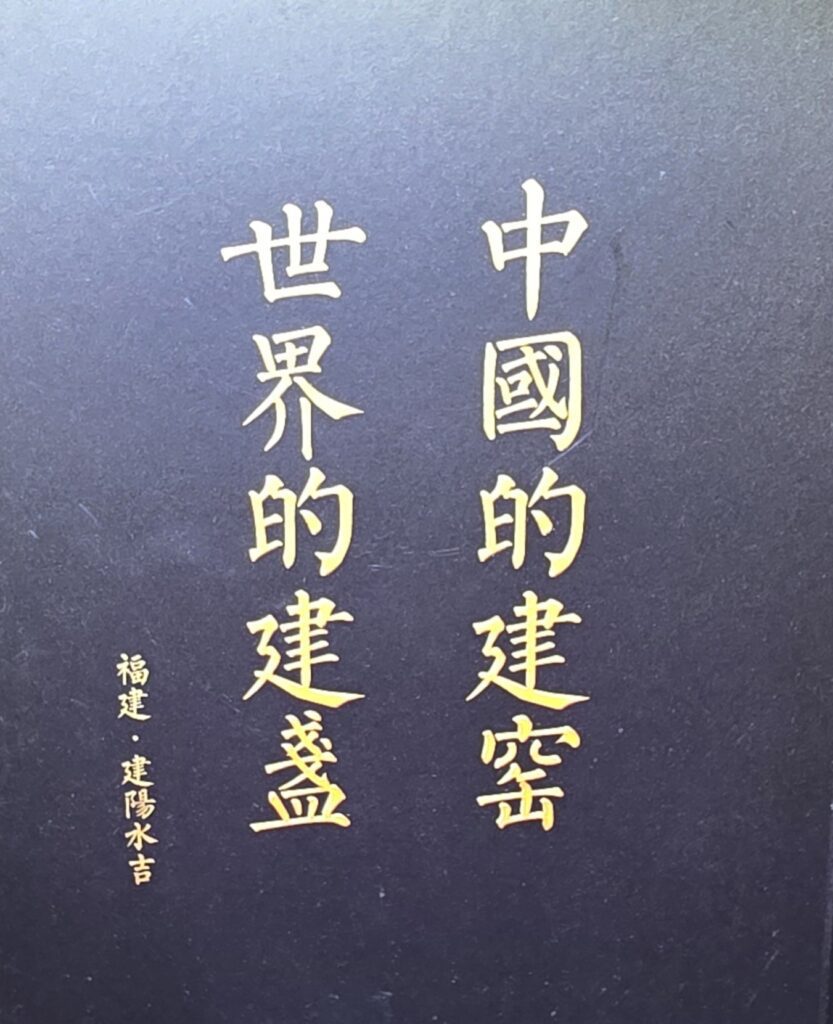 中國的建窑
世界的建盞
福建·建陽水吉